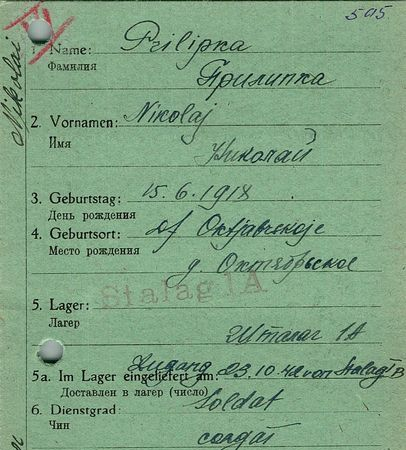 595
Mikolai
1. Name: Prilipka
Фамилия Прилипка
2. Vornamen: Nikolaj
Имя Николай
3. Geburtstag: 15.6.1918
День рождения
4. Geburtsort: Df Oktjabrskoje
Место рождения д. Октябрьское
5. Lager: Stalag 1A
Лагер Шталаг 1А
5a. Im Lager eingeliefert am: Zugang 23.10.42 von Stalag B
Доставлен в лагер (число)
6. Dienstgrad: Soldat
Чин солдат